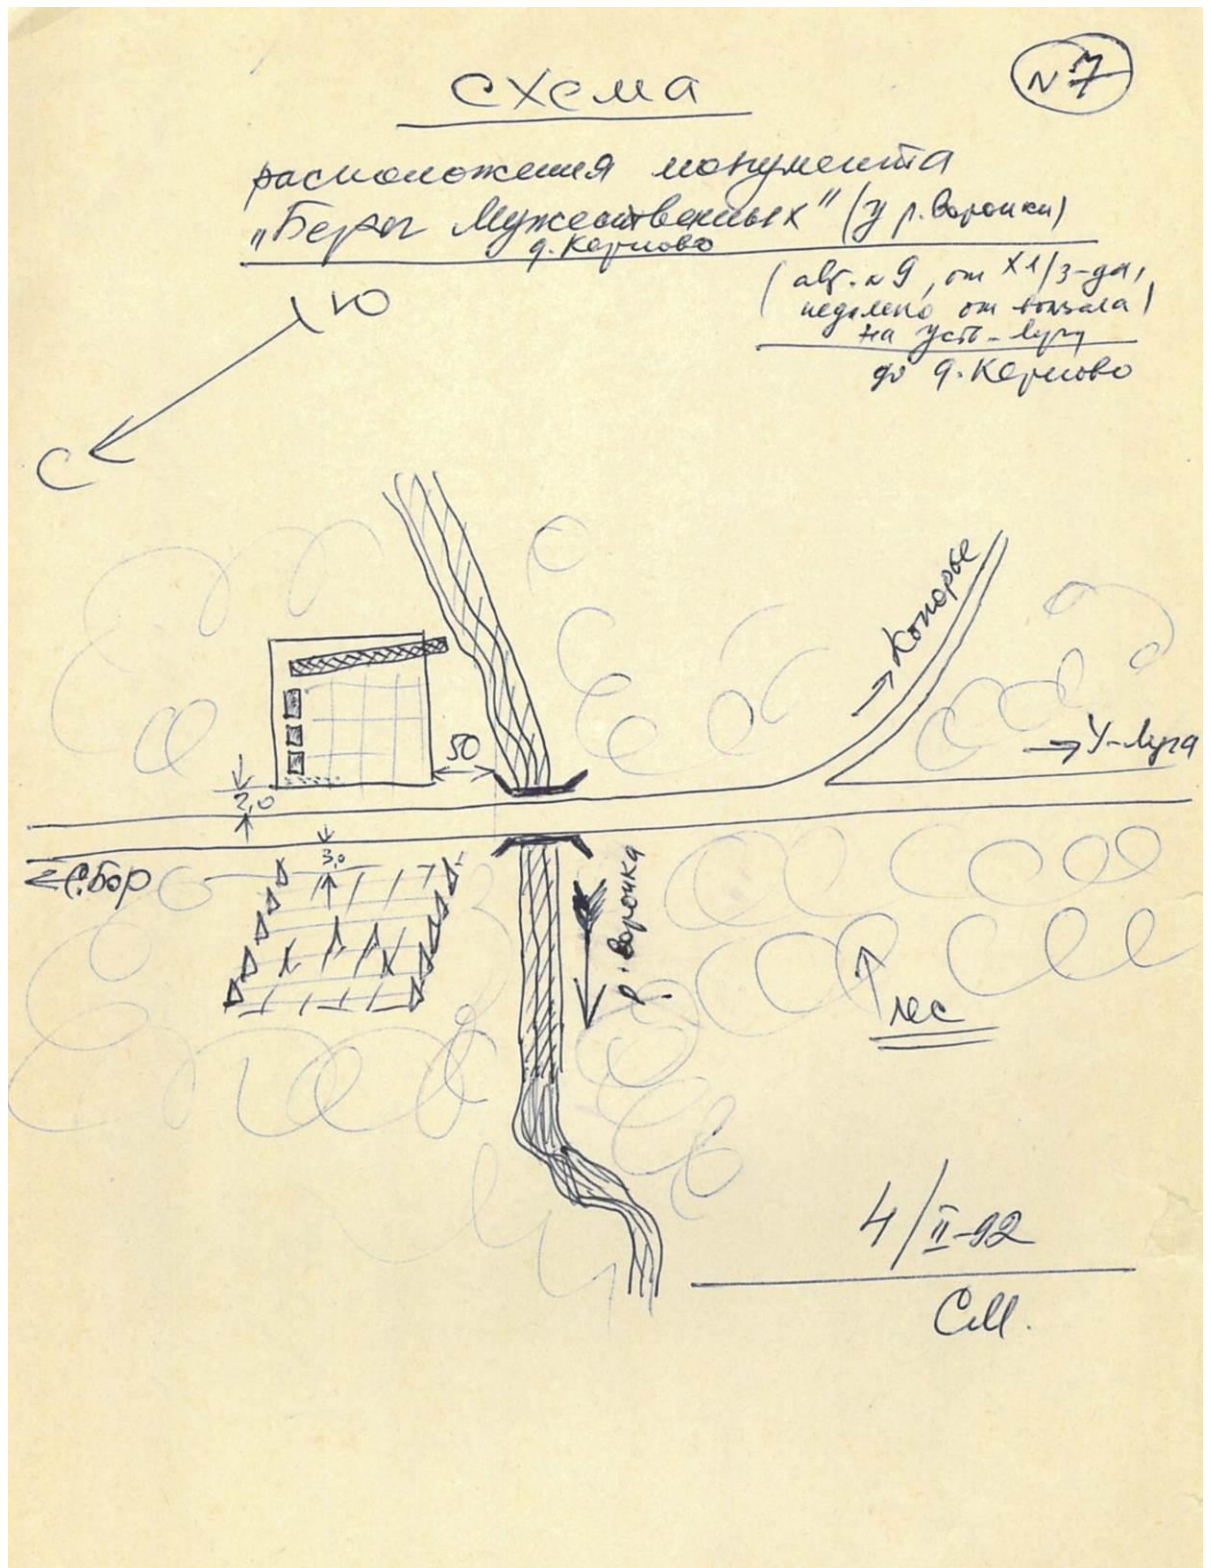 схема
№7
расположения монумента
„Берег Мужественных" (у р. Воронки)
д. Керново
(авт. №9, от Х1/3-да,
недалеко от вокзала)
на Усть-Лугу
до д. Керново
Ю
С
Копорье
У-Луга
50
2,0
3,0
С.Бор
р. Воронка
лес
4/II-92
СМ.